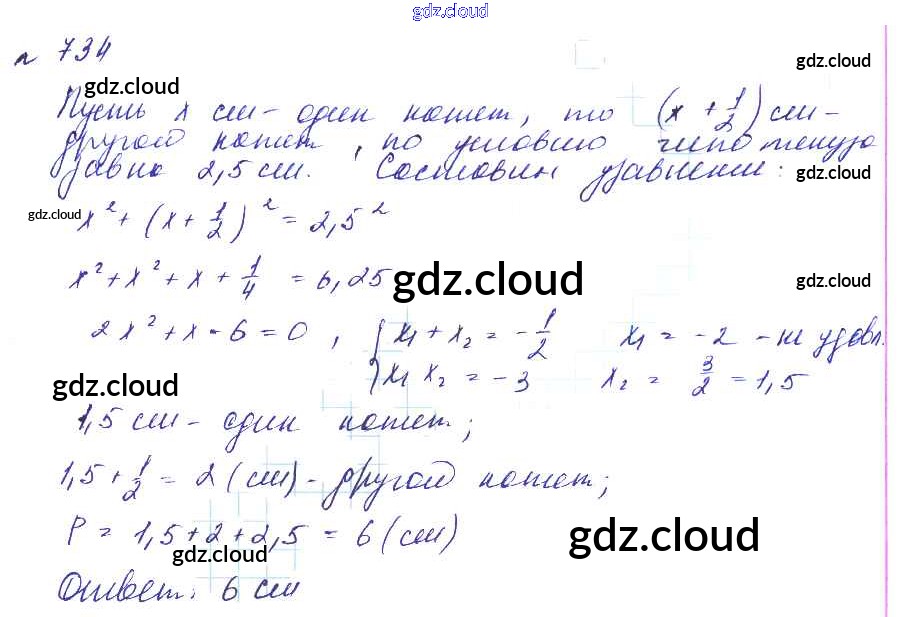 gdz.cloud
№ 734
gdz.cloud
gdz.cloud
Пусть x см - один катет, то (x + 1/2) см -
другой катет, по условию гипотенуза
равна 2,5 см. Составим уравнение:
gdz.cloud
gdz.cloud
x² + (x + 1/2)² = 2,5²
x² + x² + x + 1/4 = 6,25
gdz.cloud
gdz.cloud
2x² + x - 6 = 0, { x₁ + x₂ = -1/2 x₁ = -2 - не удовл.
x₁ x₂ = -3 x₂ = 3/2 = 1,5
gdz.cloud
1,5 см - один катет;
1,5 + 1/2 = 2 (см) - другой катет;
P = 1,5 + 2 + 2,5 = 6 (см)
gdz.cloud
gdz.cloud
Ответ: 6 см